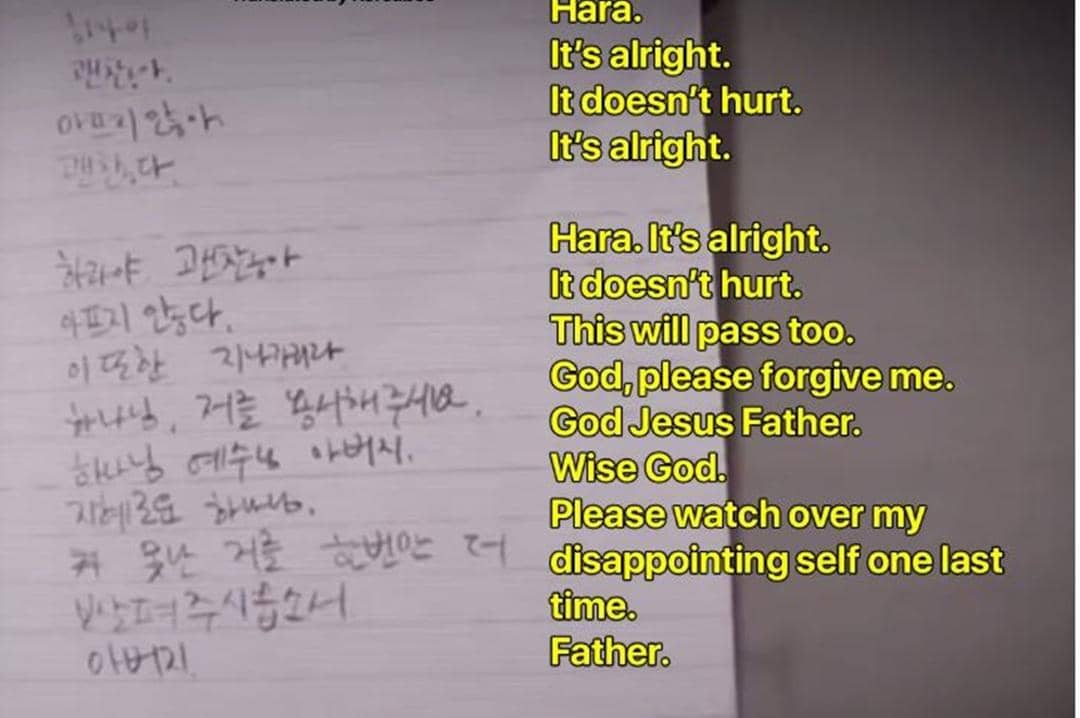 괜찮아.
아프지 않아.
괜찮다.
하라야 괜찮아
아프지 않다.
이 또한 지나가리라
하나님, 저를 용서해주세요.
하나님 예수님 아버지.
지혜로운 하나님.
못난 저를 한번만 더
보살펴주시옵소서
아버지
Hara.
It's alright.
It doesn't hurt.
It's alright.
Hara. It's alright.
It doesn't hurt.
This will pass too.
God, please forgive me.
God Jesus Father.
Wise God.
Please watch over my
disappointing self one last
time.
Father.